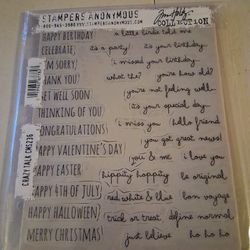 STAMPERS ANONYMOUS
Tim Holtz
COLLECTION
HAPPY BIRTHDAY a little birdie told me
CELEBRATE! it's a party! it's your birthday.
I'M SORRY! i missed your birthday.
THANK YOU! what the? you're how old?
GET WELL SOON you're not feeling well.
THINKING OF YOU it's your special day.
CONGRATULATIONS! i miss you hello friend
you got great news!
HAPPY VALENTINE'S DAY you & me i love you
HAPPY EASTER hippity hoppity be original
HAPPY 4TH OF JULY red white & blue bon voyage
HAPPY HALLOWEEN! trick or treat define normal
MERRY CHRISTMAS! just believe ho ho ho
CRAZY TALK CMS236